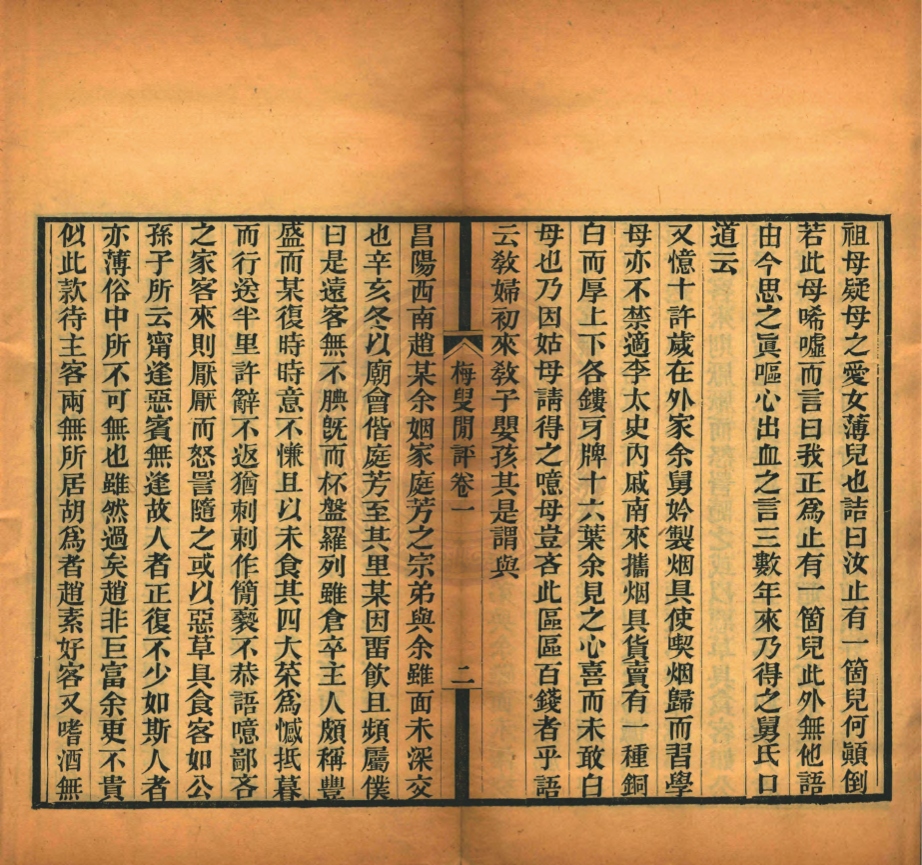 祖母疑母之愛女薄兒也詰曰汝止有一箇兒何顚倒
若此母唏噓而言曰我正爲止有一箇兒此外無他語
由今思之眞嘔心出血之言三數年來乃得之舅氏口
道云
又憶十許歲在外家余舅妗製烟具使喫烟歸而習學
母亦不禁適李太史內戚南來攜烟具貨賣有一種銅
白而厚上下各鏤牙牌十六葉余見之心喜而未敢白
母也乃因姑母請得之噫母豈吝此區區百錢者乎語
云敎婦初來敎子嬰孩其是謂與
梅叟閒評卷一
二
昌陽西南趙某余姻家庭芳之宗弟與余雖面未深交
也辛亥冬以廟會偕庭芳至其里某因畱飮且頻屬僕
曰是遠客無不腆旣而杯盤羅列雖倉卒主人頗稱豐
盛而某復時時意不慊且以未食其四大菜爲憾抵暮
而行送半里許辭不返猶刺刺作簡褻不恭語噫鄙吝
之家客來則厭厭而怒詈隨之或以惡草具食客如公
孫子所云甯逢惡賓無逢故人者正復不少如斯人者
亦薄俗中所不可無也雖然過矣趙非巨富余更不貴
似此款待主客兩無所居胡爲者趙素好客又嗜酒無